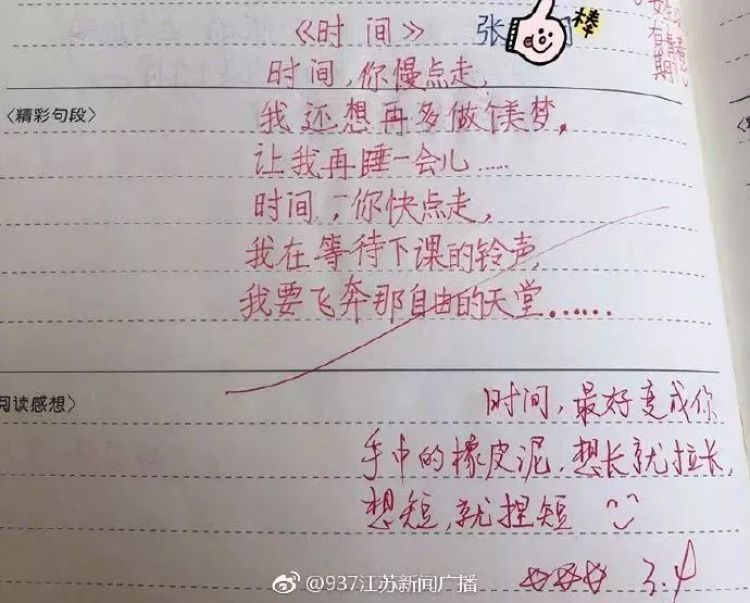 《时间》 张
棒
时间,你慢点走,
〈精彩句段〉
我还想再多做个美梦,
让我再睡一会儿……
时间,你快点走,
我在等待下课的铃声,
我要飞奔那自由的天堂……
阅读感想〉
时间,最好变成你
手中的橡皮泥,想长就拉长,
想短,就捏短
3.4
@937江苏新闻广播